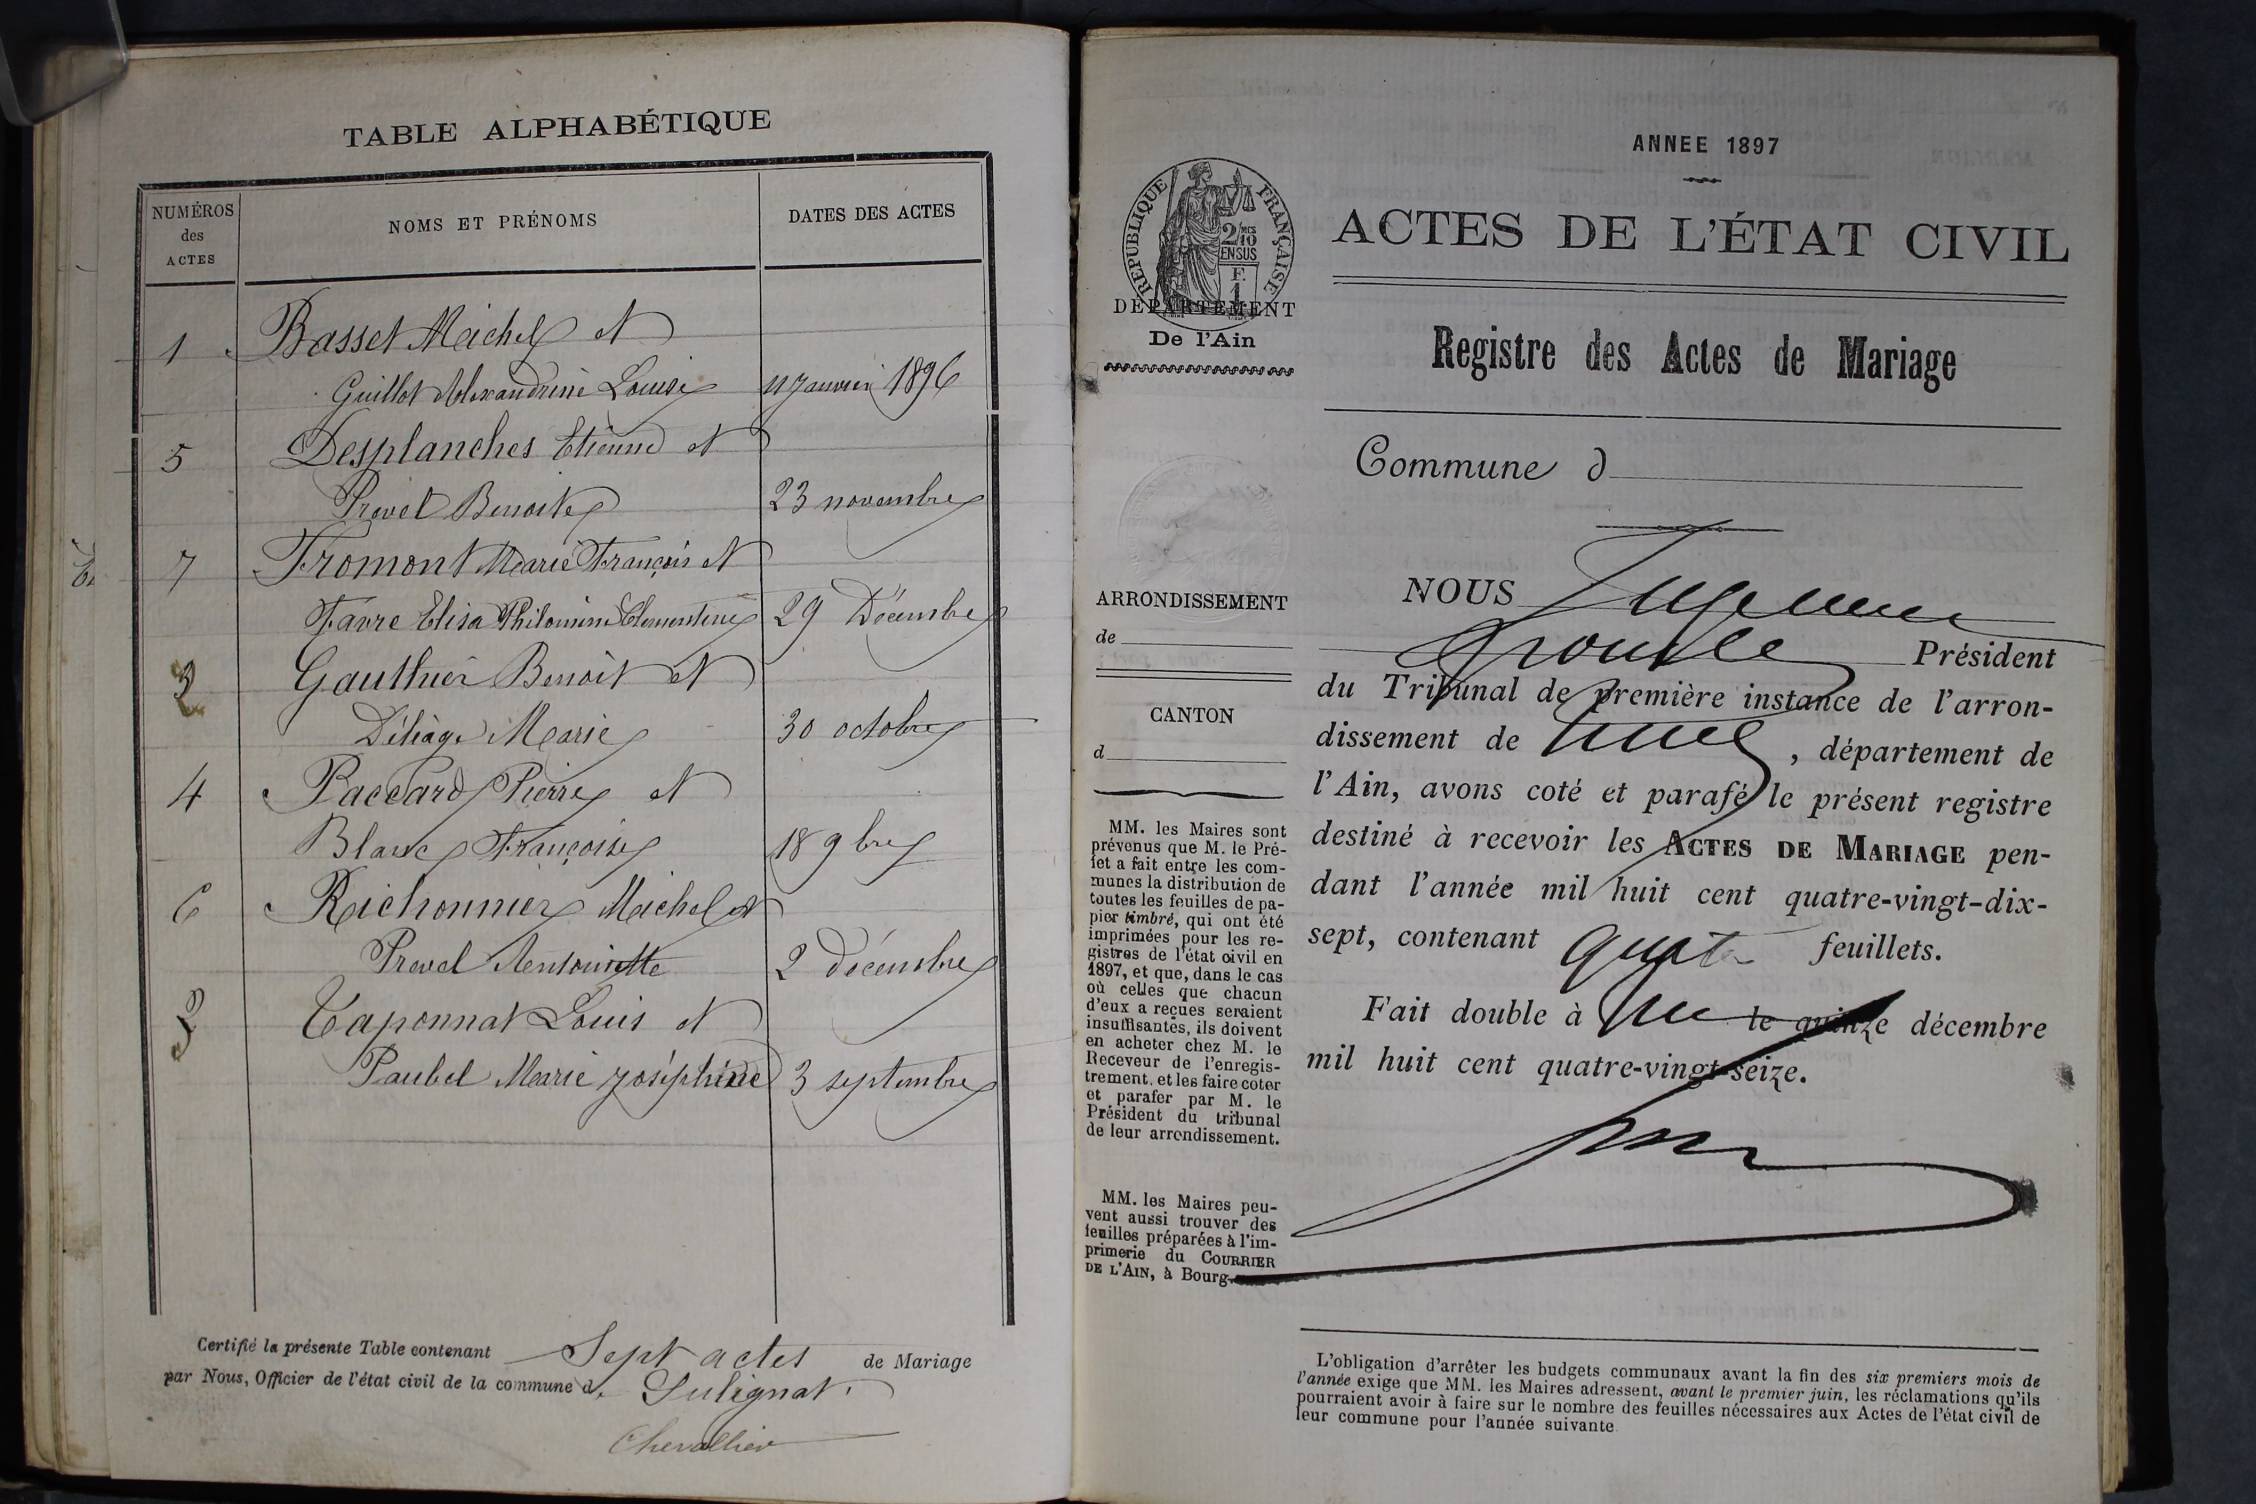 TABLE ALPHABÉTIQUE
NUMÉROS
des
ACTES
NOMS ET PRÉNOMS
DATES DES ACTES
1 Basset Michel et
Guillot Alexandrine Louise 11 Janvier 1896
5 Desplanches Etienne et
Prevel Benoite 23 novembre
7 Fromont Marie François et
Favre Elisa Philomène Clementine 29 Décembre
3 Gauthier Benoit et
Déliage Marie 30 octobre
4 Paccard Pierre et
Blanc Françoise 18 9bre
6 Richonnier Michel et
Prevel Antoinette 2 décembre
Taponnat Louis et
Paubel Marie Joséphine 3 septembre
Certifié la présente Table contenant Sept actes de Mariage
par Nous, Officier de l'état civil de la commune de Sulignat.
Chevallier
ANNEE 1897
RÉPUBLIQUE FRANÇAISE
2/10
EN SUS
DÉPARTEMENT
De l'Ain
ACTES DE L'ÉTAT CIVIL
Registre des Actes de Mariage
Commune d
ARRONDISSEMENT
de
CANTON
d
MM. les Maires sont
prévenus que M. le Pré-
fet a fait entre les com-
munes la distribution de
toutes les feuilles de pa-
pier timbré, qui ont été
imprimées pour les re-
gistres de l'état civil en
1897, et que, dans le cas
où celles que chacun
d'eux a reçues seraient
insuffisantes, ils doivent
en acheter chez M. le
Receveur de l'enregis-
trement, et les faire coter
et parafer par M. le
Président du tribunal
de leur arrondissement.
MM. les Maires peu-
vent aussi trouver des
feuilles préparées à l'im-
primerie du COURRIER
DE L'AIN, à Bourg.
NOUS
Président
du Tribunal de première instance de l'arron-
dissement de , département de
l'Ain, avons coté et parafé le présent registre
destiné à recevoir les ACTES DE MARIAGE pen-
dant l'année mil huit cent quatre-vingt-dix-
sept, contenant quatre feuillets.
Fait double à le quinze décembre
mil huit cent quatre-vingt-seize.
L'obligation d'arrêter les budgets communaux avant la fin des six premiers mois de
l'année exige que MM. les Maires adressent, avant le premier juin, les réclamations qu'ils
pourraient avoir à faire sur le nombre des feuilles nécessaires aux Actes de l'état civil de
leur commune pour l'année suivante